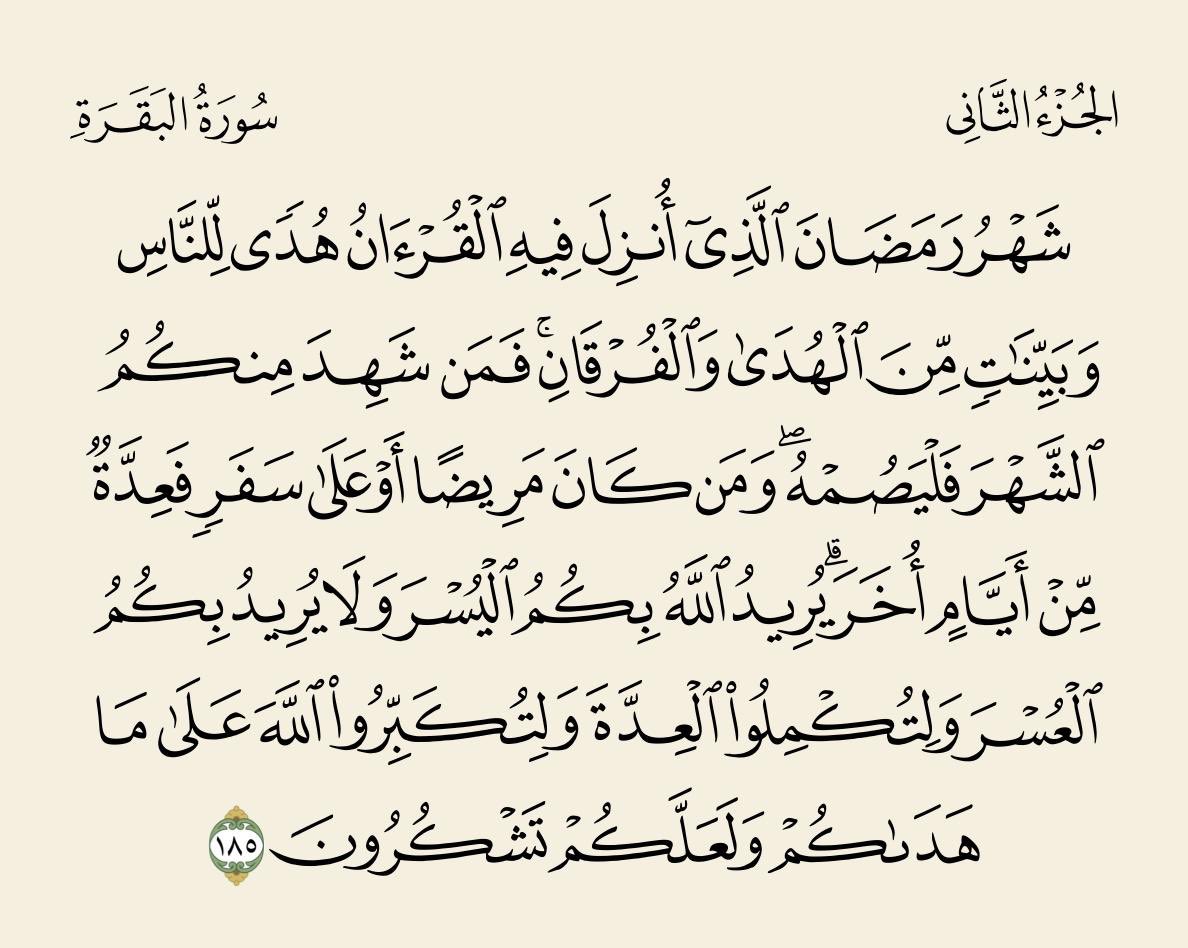 الجُزْءُ الثَّانِى
سُورَةُ البَقَرَةِ
شَهْرُ رَمَضَانَ ٱلَّذِىٓ أُنزِلَ فِيهِ ٱلْقُرْءَانُ هُدًى لِّلنَّاسِ
وَبَيِّنَٰتٍ مِّنَ ٱلْهُدَىٰ وَٱلْفُرْقَانِ ۚ فَمَن شَهِدَ مِنكُمُ
ٱلشَّهْرَ فَلْيَصُمْهُ ۖ وَمَن كَانَ مَرِيضًا أَوْ عَلَىٰ سَفَرٍ فَعِدَّةٌ
مِّنْ أَيَّامٍ أُخَرَ ۗ يُرِيدُ ٱللَّهُ بِكُمُ ٱلْيُسْرَ وَلَا يُرِيدُ بِكُمُ
ٱلْعُسْرَ وَلِتُكْمِلُوا۟ ٱلْعِدَّةَ وَلِتُكَبِّرُوا۟ ٱللَّهَ عَلَىٰ مَا
هَدَىٰكُمْ وَلَعَلَّكُمْ تَشْكُرُونَ ١٨٥